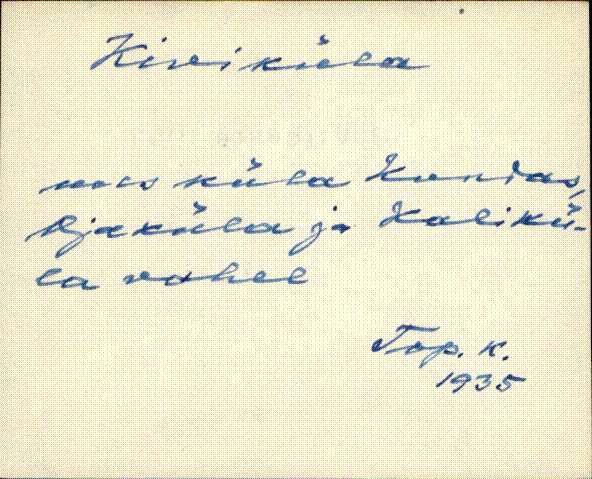 Kiviküla
uus küla Kundas,
Ojaküla ja Kalikü-
la vahel
Top. k.
1935